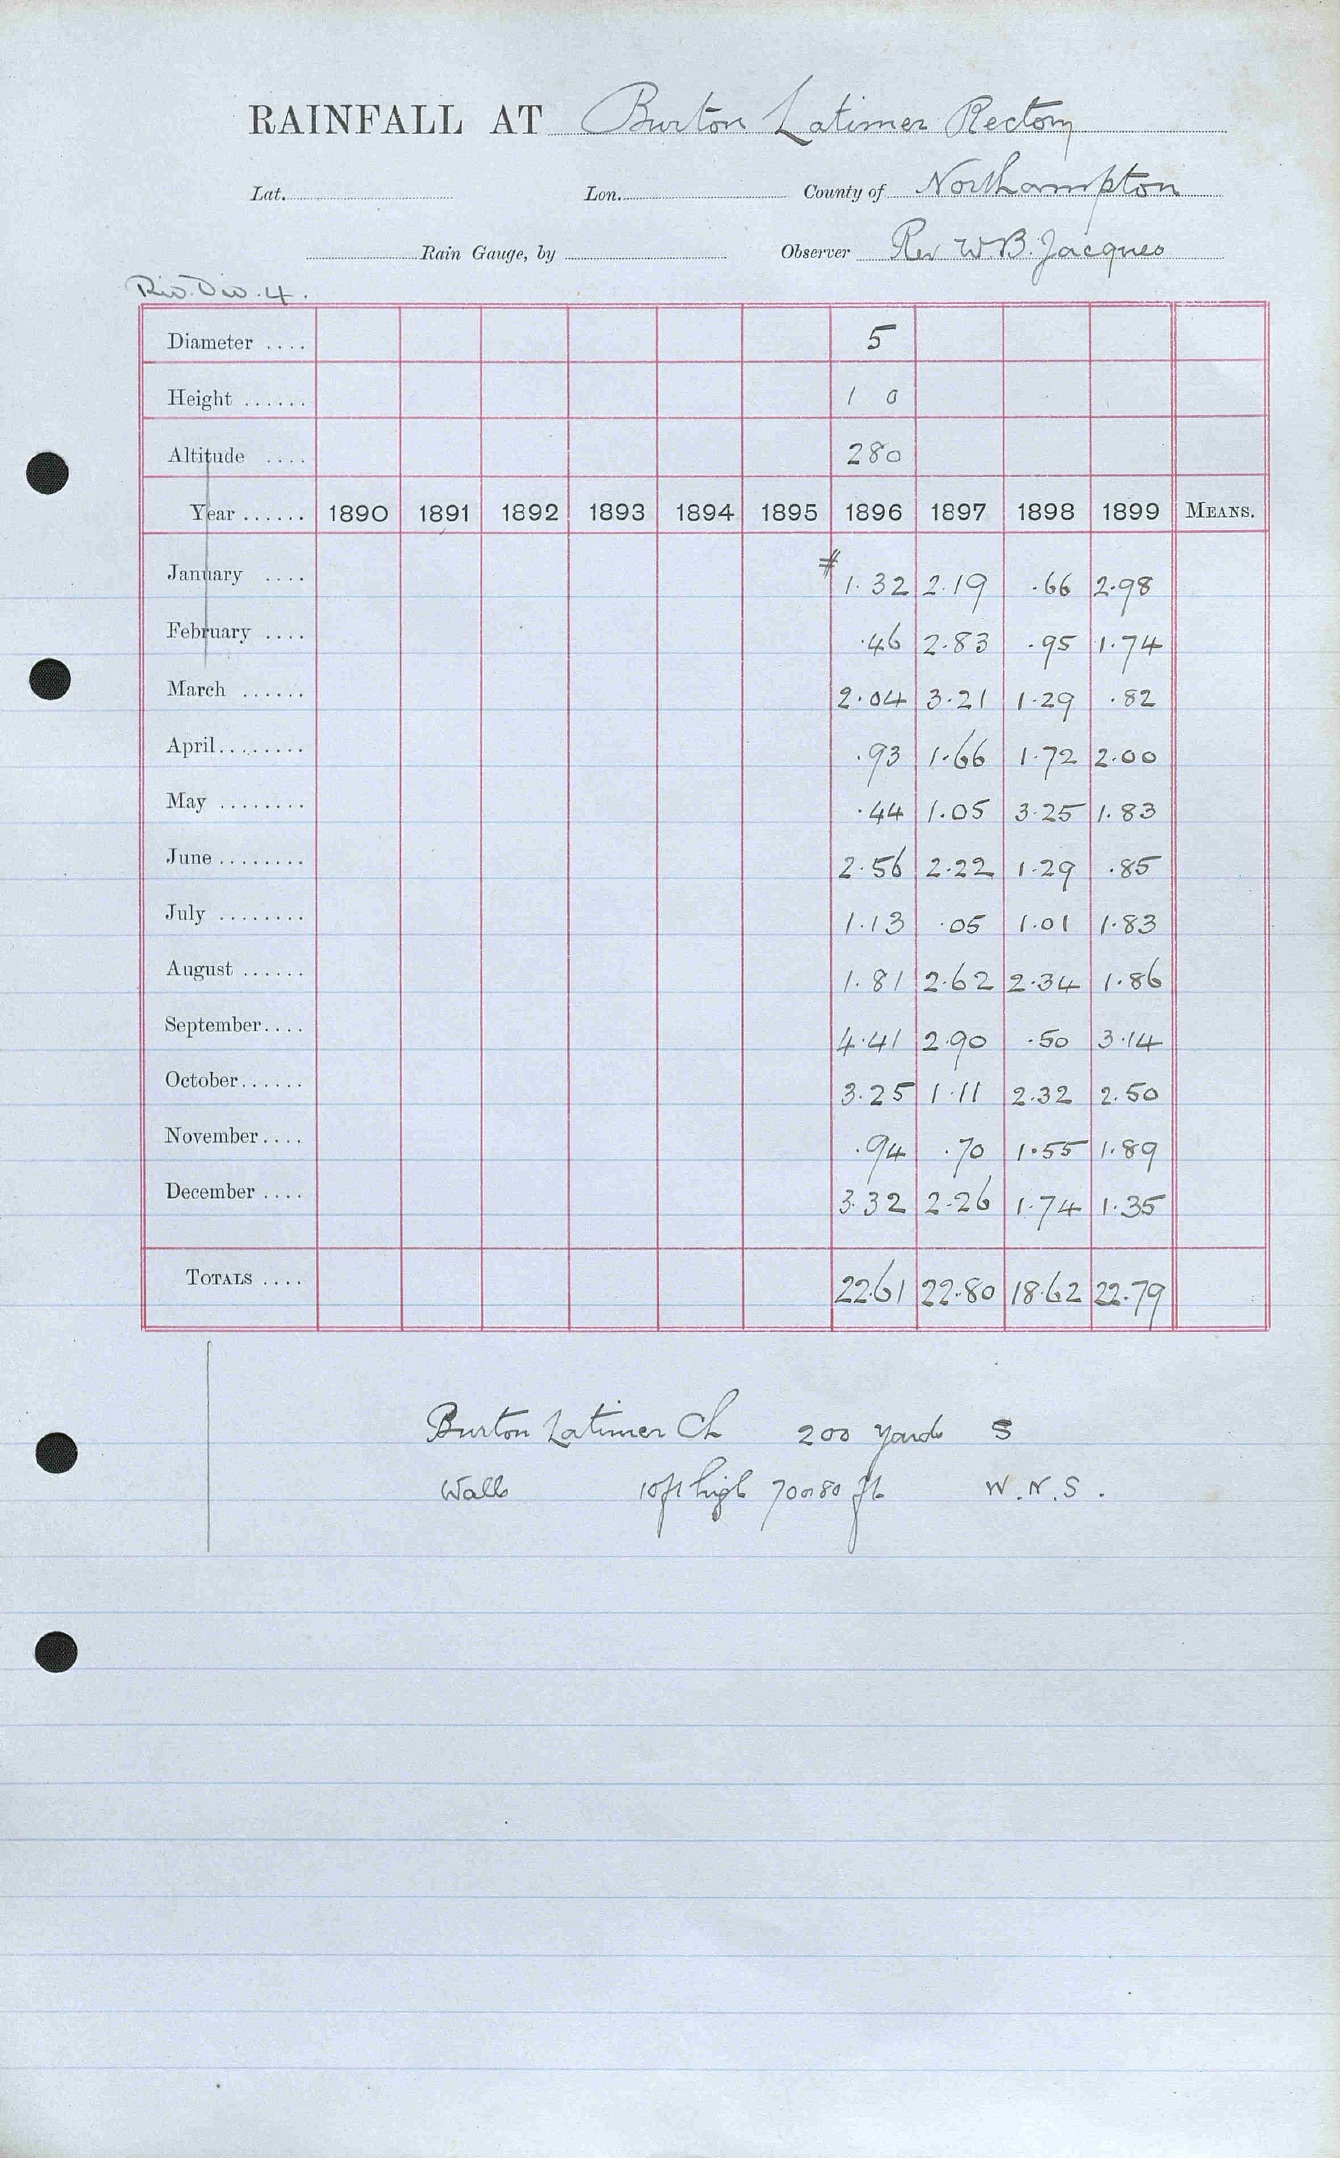 RAINFALL AT Burton Latimer Rectory
Lat. Lon. County of Northampton
Rain Gauge, by Observer Rev W.B. Jacques
Riv. Div. 4.
Diameter .... 5
Height ...... 1 0
Altitude .... 280
Year ...... 1890 1891 1892 1893 1894 1895 1896 1897 1898 1899 MEANS.
January .... # 1.32 2.19 .66 2.98
February .... .46 2.83 .95 1.74
March ...... 2.04 3.21 1.29 .82
April ........ .93 1.66 1.72 2.00
May ........ .44 1.05 3.25 1.83
June ........ 2.56 2.22 1.29 .85
July ........ 1.13 .05 1.01 1.83
August ...... 1.81 2.62 2.34 1.86
September .... 4.41 2.90 .50 3.14
October ...... 3.25 1.11 2.32 2.50
November .... .94 .70 1.55 1.89
December .... 3.32 2.26 1.74 1.35
TOTALS .... 22.61 22.80 18.62 22.79
Burton Latimer Ch 200 yards S
Walls 10ft high 70 or 80 ft W.N.S.